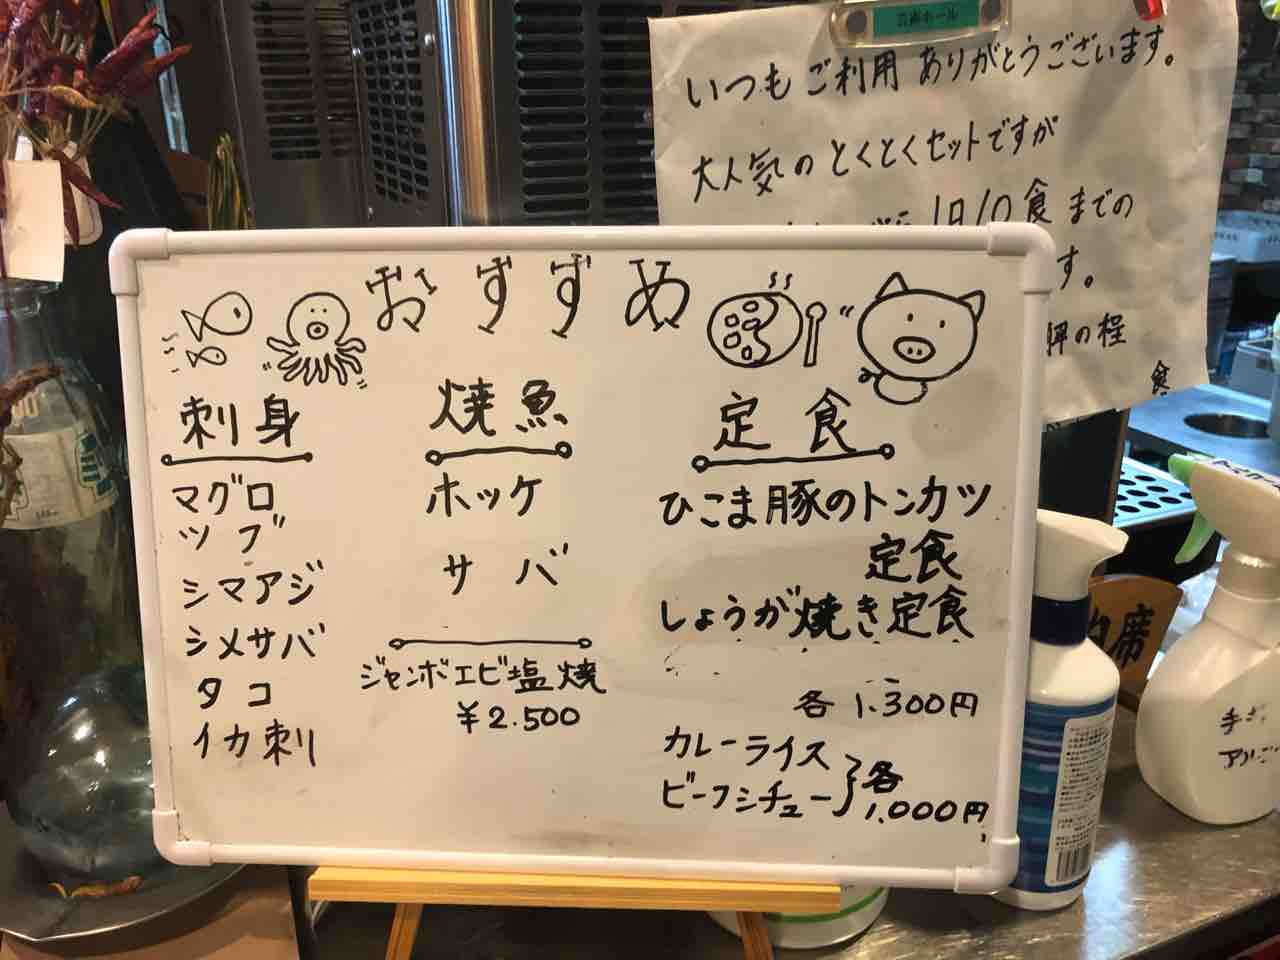 いつもご利用ありがとうございます。
大人気のとくとくセットですが
1日10食までの
す。
の程
おすすめ
刺身
マグロ
ツブ
シマアジ
シメサバ
タコ
イカ刺
焼魚
ホッケ
サバ
ジャンボエビ塩焼
¥2.500
定食
ひこま豚のトンカツ
定食
しょうが焼き定食
各 1.300円
カレーライス
ビーフシチュー
各
1.000円
席